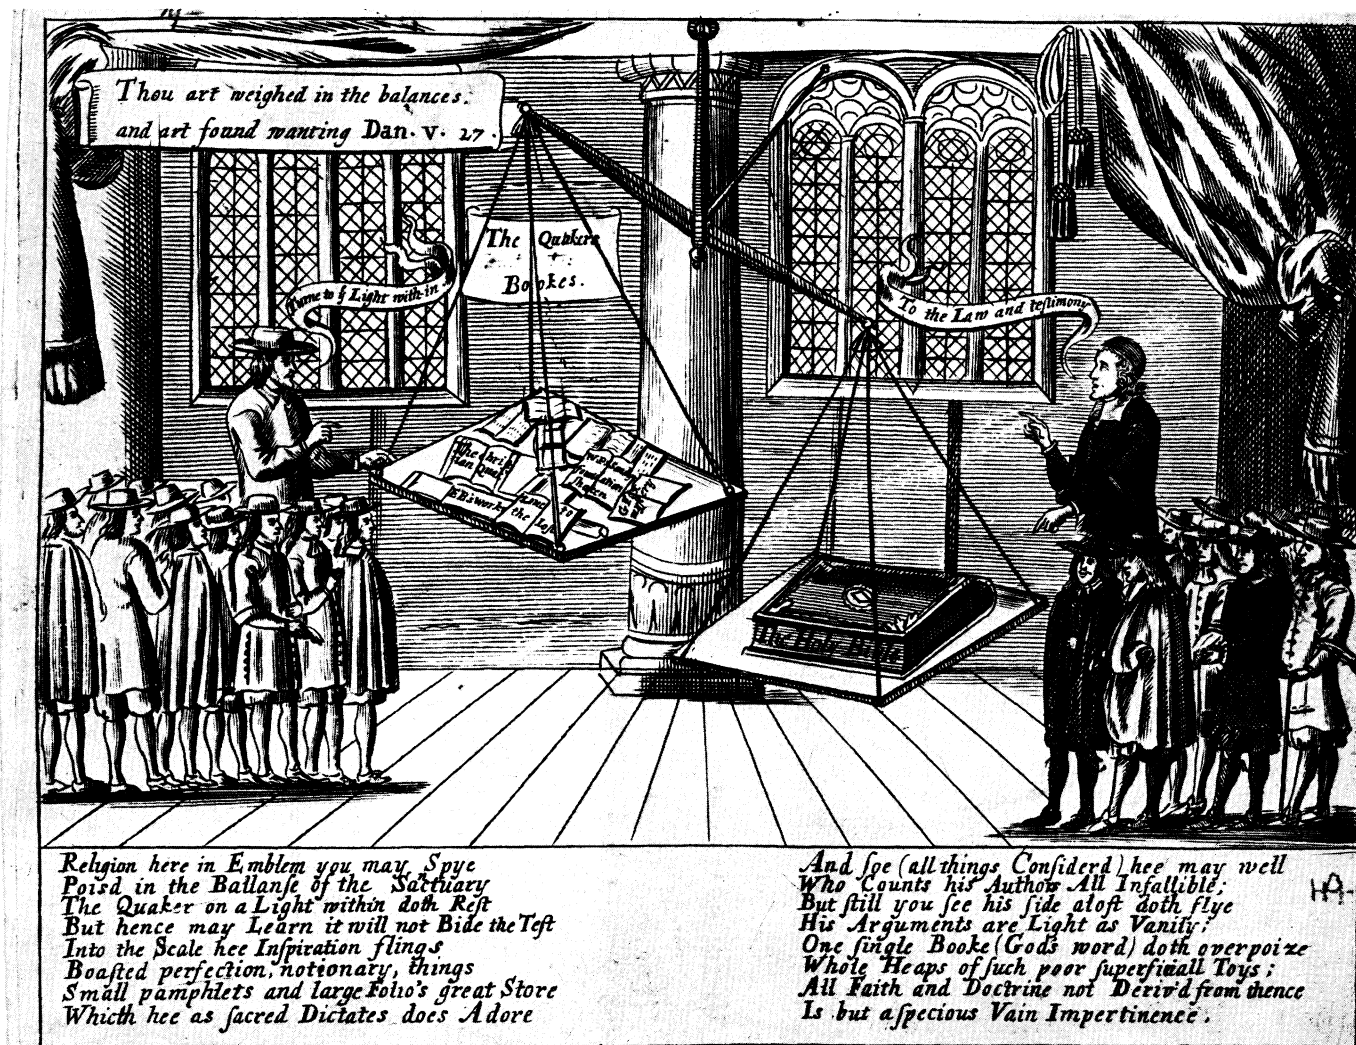 Thou art weighed in the balances.
and art found wanting Dan. v. 27.
The Quakers
Bookes.
Turne to ẏ Light with in
To the Law and teſtimony
The Chriſ
tian Qua
foundation
ſhaken
EB's works
the Loſt
The Holy Bible
Religion here in Emblem you may Spye
Poisd in the Ballanſe of the Sactuary
The Quaker on a Light within doth Reſt
But hence may Learn it will not Bide the Teſt
Into the Scale hee Inſpiration flings
Boaſted perfection, notionary, things
Small pamphlets and large Folio's great Store
Whicth hee as ſacred Dictates does Adore
And ſoe (all things Conſiderd) hee may well
Who Counts his Authors All Infallible;
But ſtill you ſee his ſide aloft doth flye
His Arguments are Light as Vanity;
One ſingle Booke (Gods word) doth overpoize
Whole Heaps of ſuch poor ſuperficiall Toys;
All Faith and Doctrine not Deriv'd from thence
Is but a ſpecious Vain Impertinence.